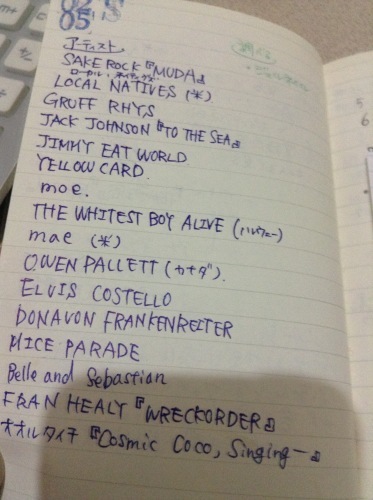 02'S
05
アーティスト
SAKE ROCK『MUDA』
ローカル・ネイティブズ
LOCAL NATIVES (米)
GRUFF RHYS
JACK JOHNSON『TO THE SEA』
JIMMY EAT WORLD
YELLOWCARD
moe.
THE WHITEST BOY ALIVE (ノルウェー)
mae (米)
OWEN PALLETT (カナダ).
ELVIS COSTELLO
DONAVON FRANKENREITER
MICE PARADE
Belle and Sebastian
FRAN HEALY『WRECKORDER』
オオルタイチ『Cosmic Coco, Singing—』
5
6